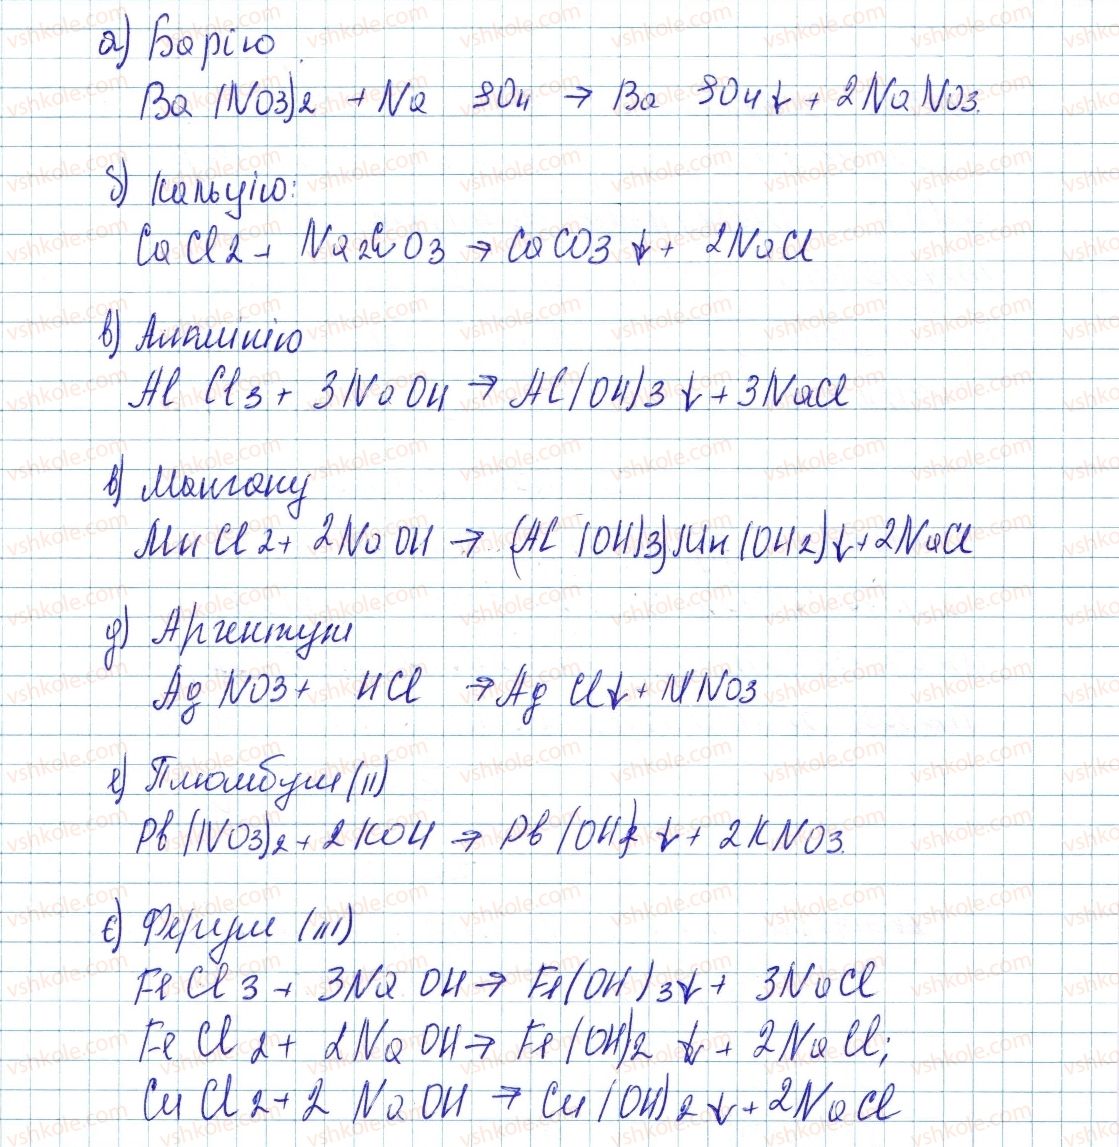 а) Барію
Ba(NO3)2 + Na SO4 → Ba SO4↓ + 2NaNO3.
б) Кальцію:
CaCl2 + Na2CO3 → CaCO3↓ + 2NaCl
в) Алюмінію
AlCl3 + 3NaOH → Al(OH)3↓ + 3NaCl
в) Мангану
MnCl2 + 2NaOH → (Al(OH)3) Mn(OH2)↓ + 2NaCl
д) Аргентум
AgNO3 + HCl → AgCl↓ + HNO3
е) Плюмбум (II)
Pb(NO3)2 + 2KOH → Pb(OH)2↓ + 2KNO3.
є) Ферум (III)
FeCl3 + 3NaOH → Fe(OH)3↓ + 3NaCl
FeCl2 + 2NaOH → Fe(OH)2↓ + 2NaCl;
CuCl2 + 2NaOH → Cu(OH)2↓ + 2NaCl